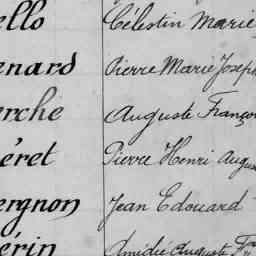 ello Célestin Marie
enard Pierre Marie Joseph
erché Auguste Franço
éret Pierre Henri Augus
ergnon Jean Edouard
érin Amédée Auguste Fr